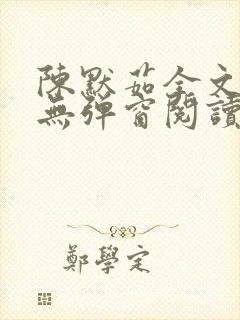 陳默茹全文
無彈窗閱讀
鄭學定